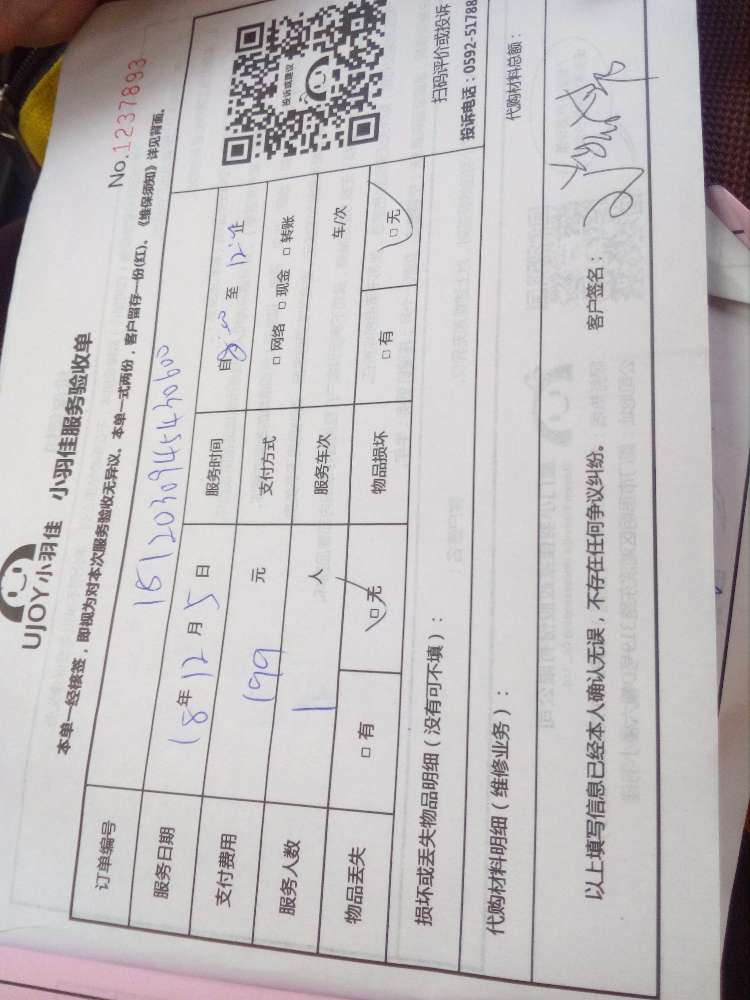 UJOY小羽佳 小羽佳服务验收单
No.1237893
本单一经核签，即视为对本次服务验收无异议。本单一式两份，客户留存一份(红)。《维保须知》详见背面。
订单编号
服务日期 18年12月5日 服务时间 自8:00至12:
支付费用 199元 支付方式 □网络 □现金 □转账
服务人数 1人 服务车次 车/次
物品丢失 □有 □无 物品损坏 □有 □无
投诉或建议
扫码评价或投诉
投诉电话：0592-51788
损坏或丢失物品明细（没有可不填）：
代购材料明细（维修业务）： 代购材料总额：
以上填写信息已经本人确认无误，不存在任何争议纠纷。 客户签名：